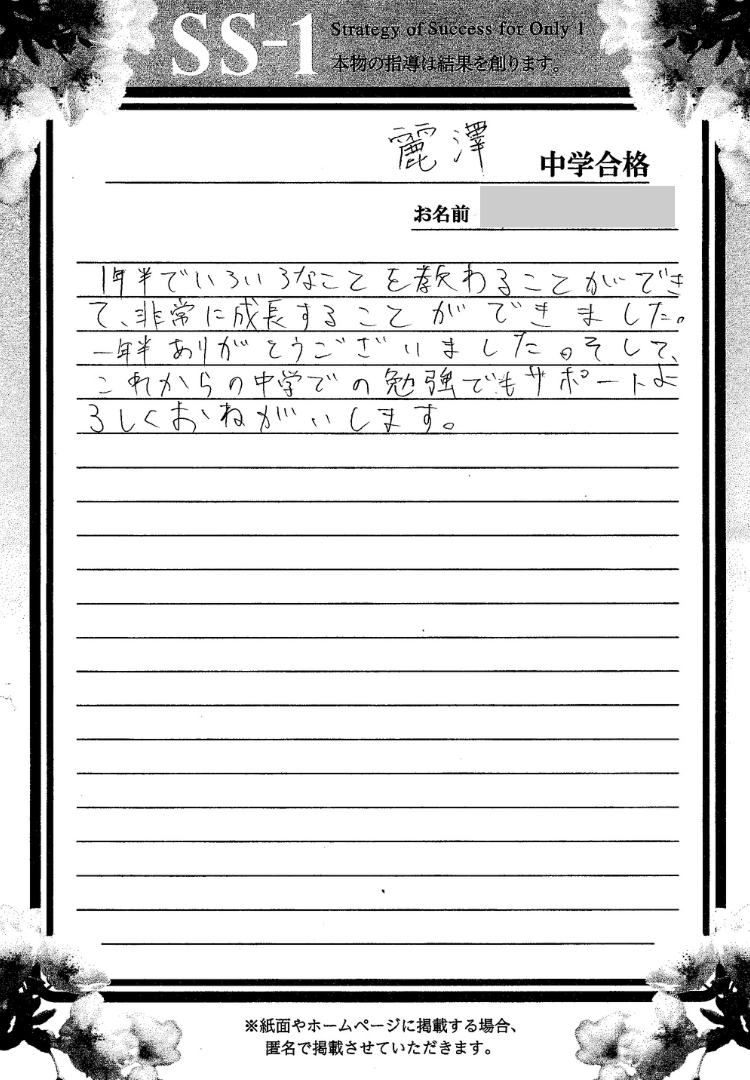 SS-1
Strategy of Success for Only 1
本物の指導は結果を創ります。
麗澤 中学合格
お名前
1年半でいろいろなことを教わることができ
て、非常に成長することができました。
一年半ありがとうございました。そして、
これからの中学での勉強でもサポートよ
ろしくおねがいします。
※紙面やホームページに掲載する場合、
匿名で掲載させていただきます。